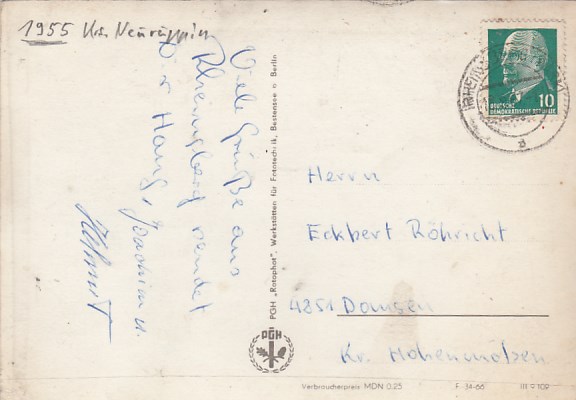 1955 Krs. Neuruppin
Viele Grüße aus
Rheinsberg sendet
Dir Hans, Joachim u.
Helmut
PGH „Rotophot", Werkstätten für Fototechnik, Bestensee b Berlin
PGH
10
DEUTSCHE
DEMOKRATISCHE REPUBLIK
a
Herrn
Eckbert Röhricht
4851 Domsen
Kr. Hohenmölsen
Verbraucherpreis MDN 0,25 F 34-66 III 9 109